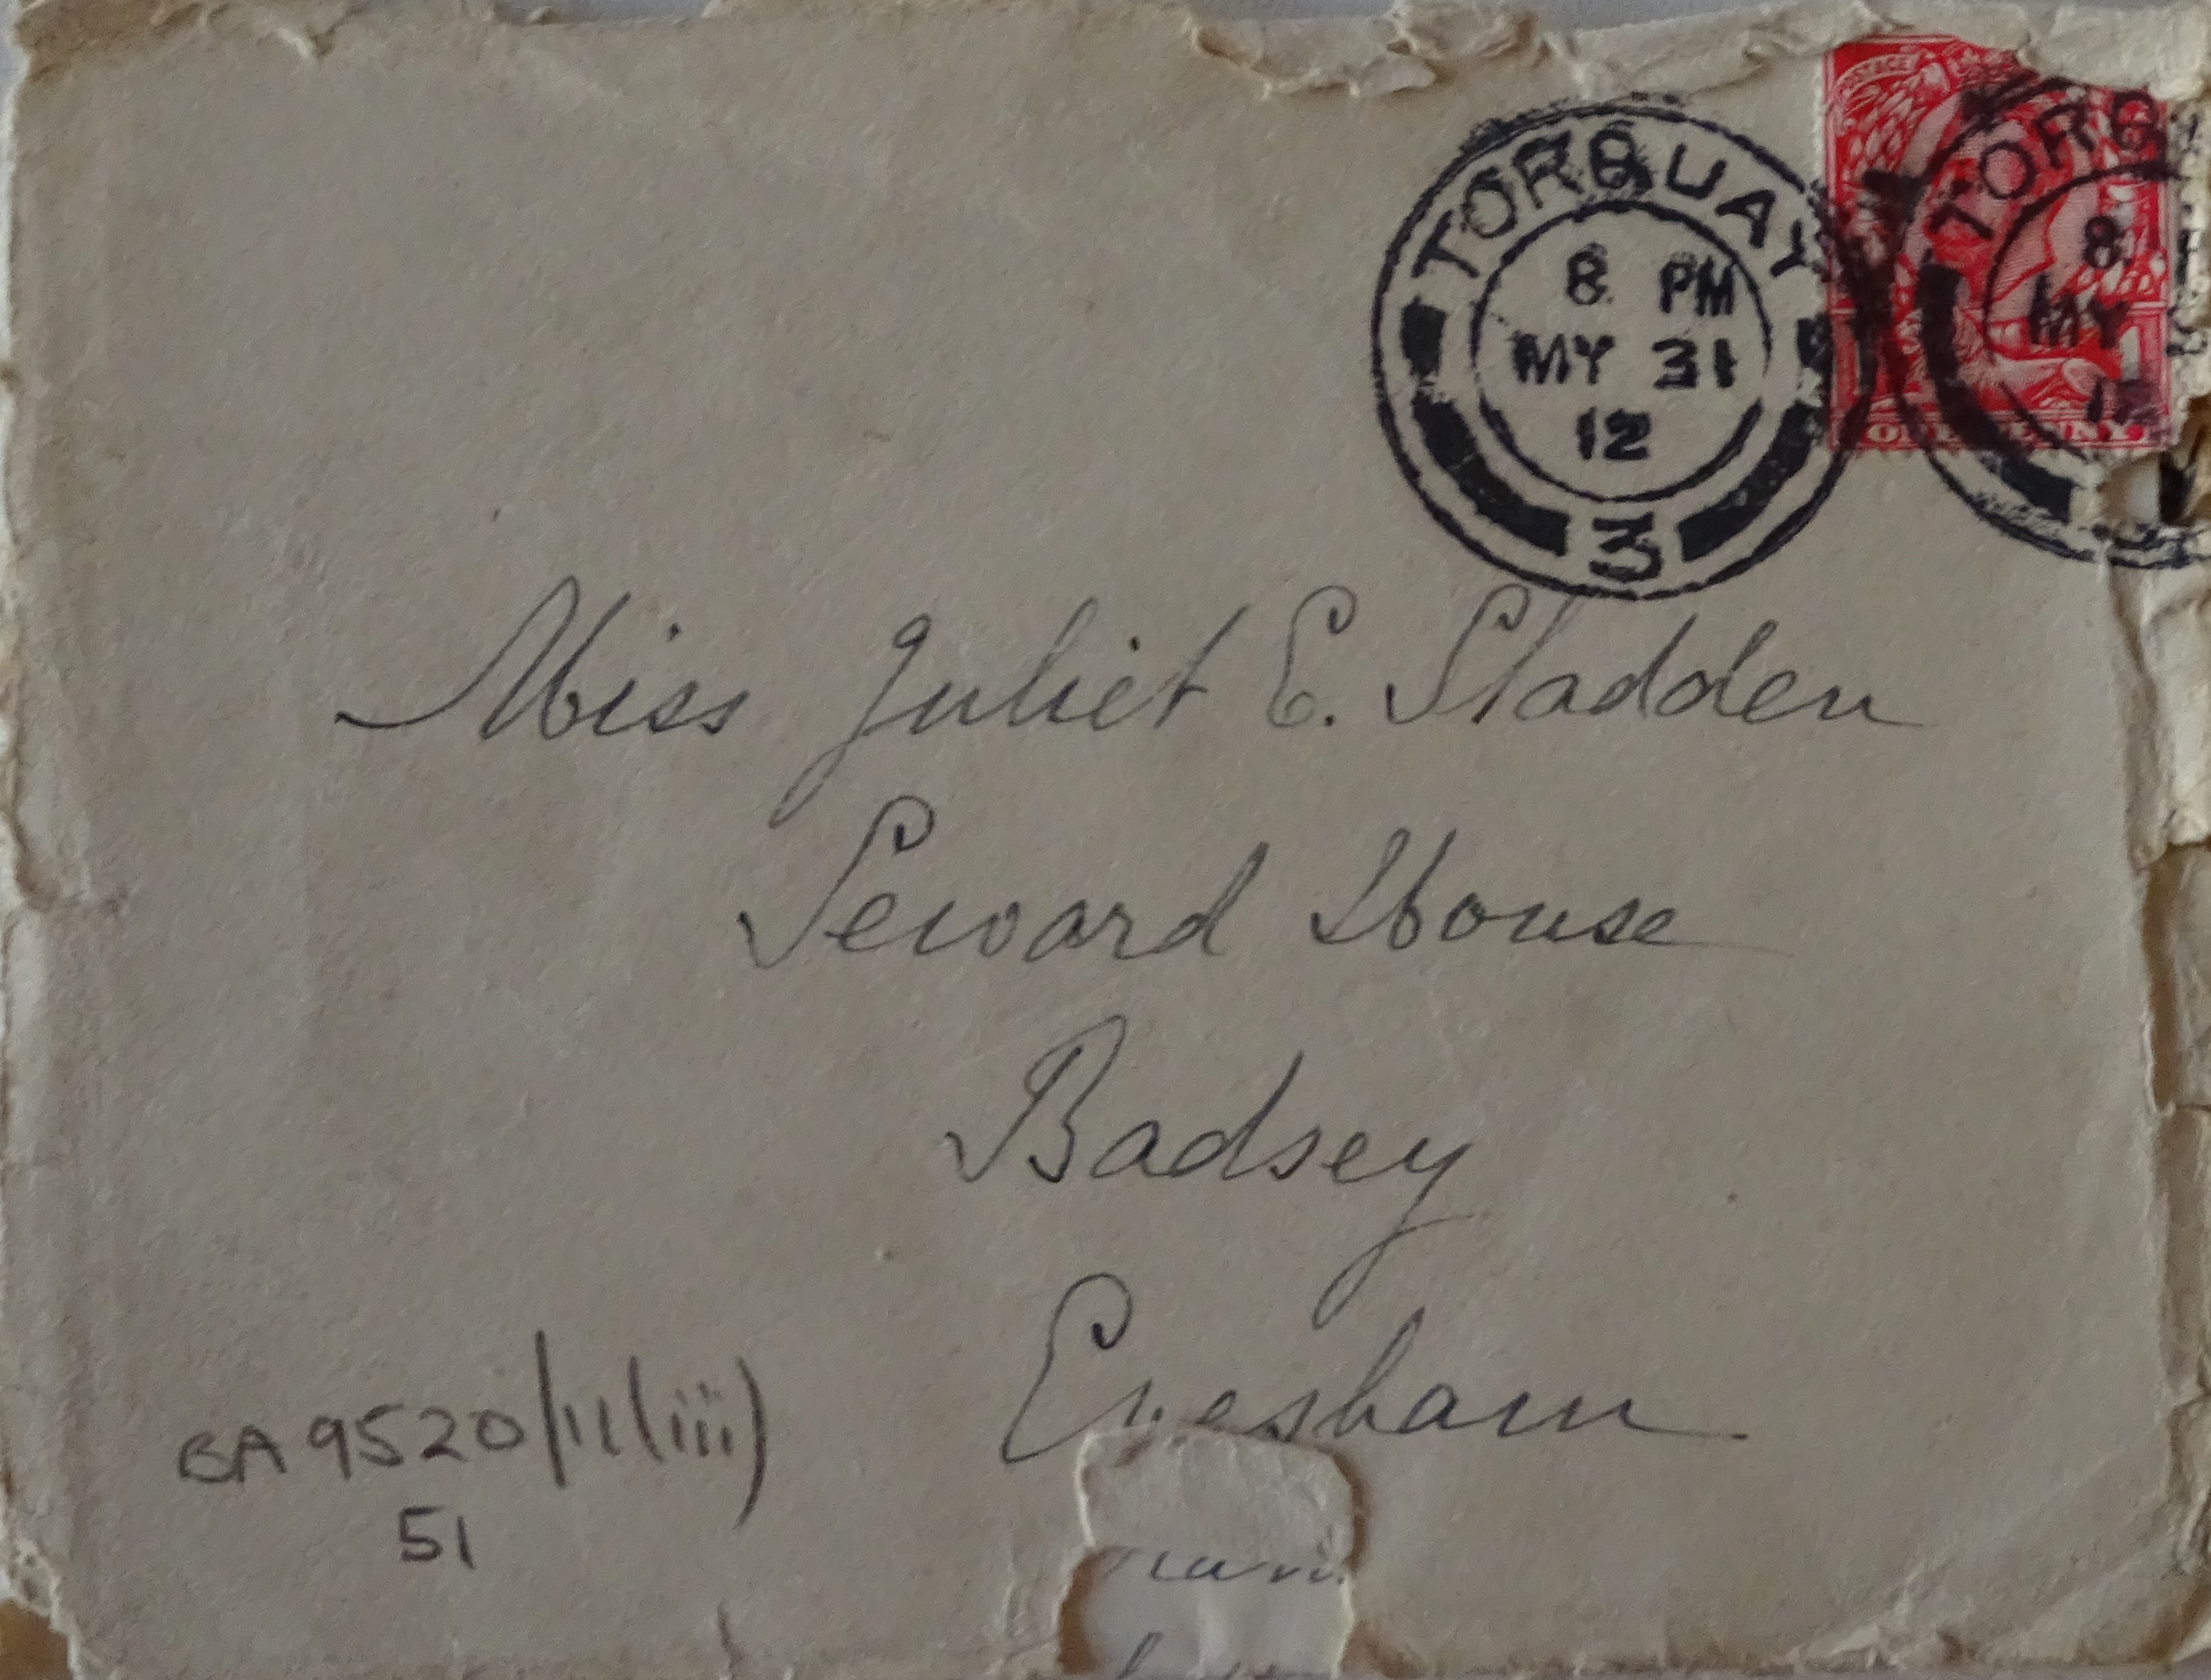 TORQUAY
8 PM
MY 31
12
3
POSTAGE
TORQ
8
MY
12
ONE PENNY.
Miss Juliet E. Sladden
Seward House
Badsey
Evesham
BA 9520/11(iii)
51